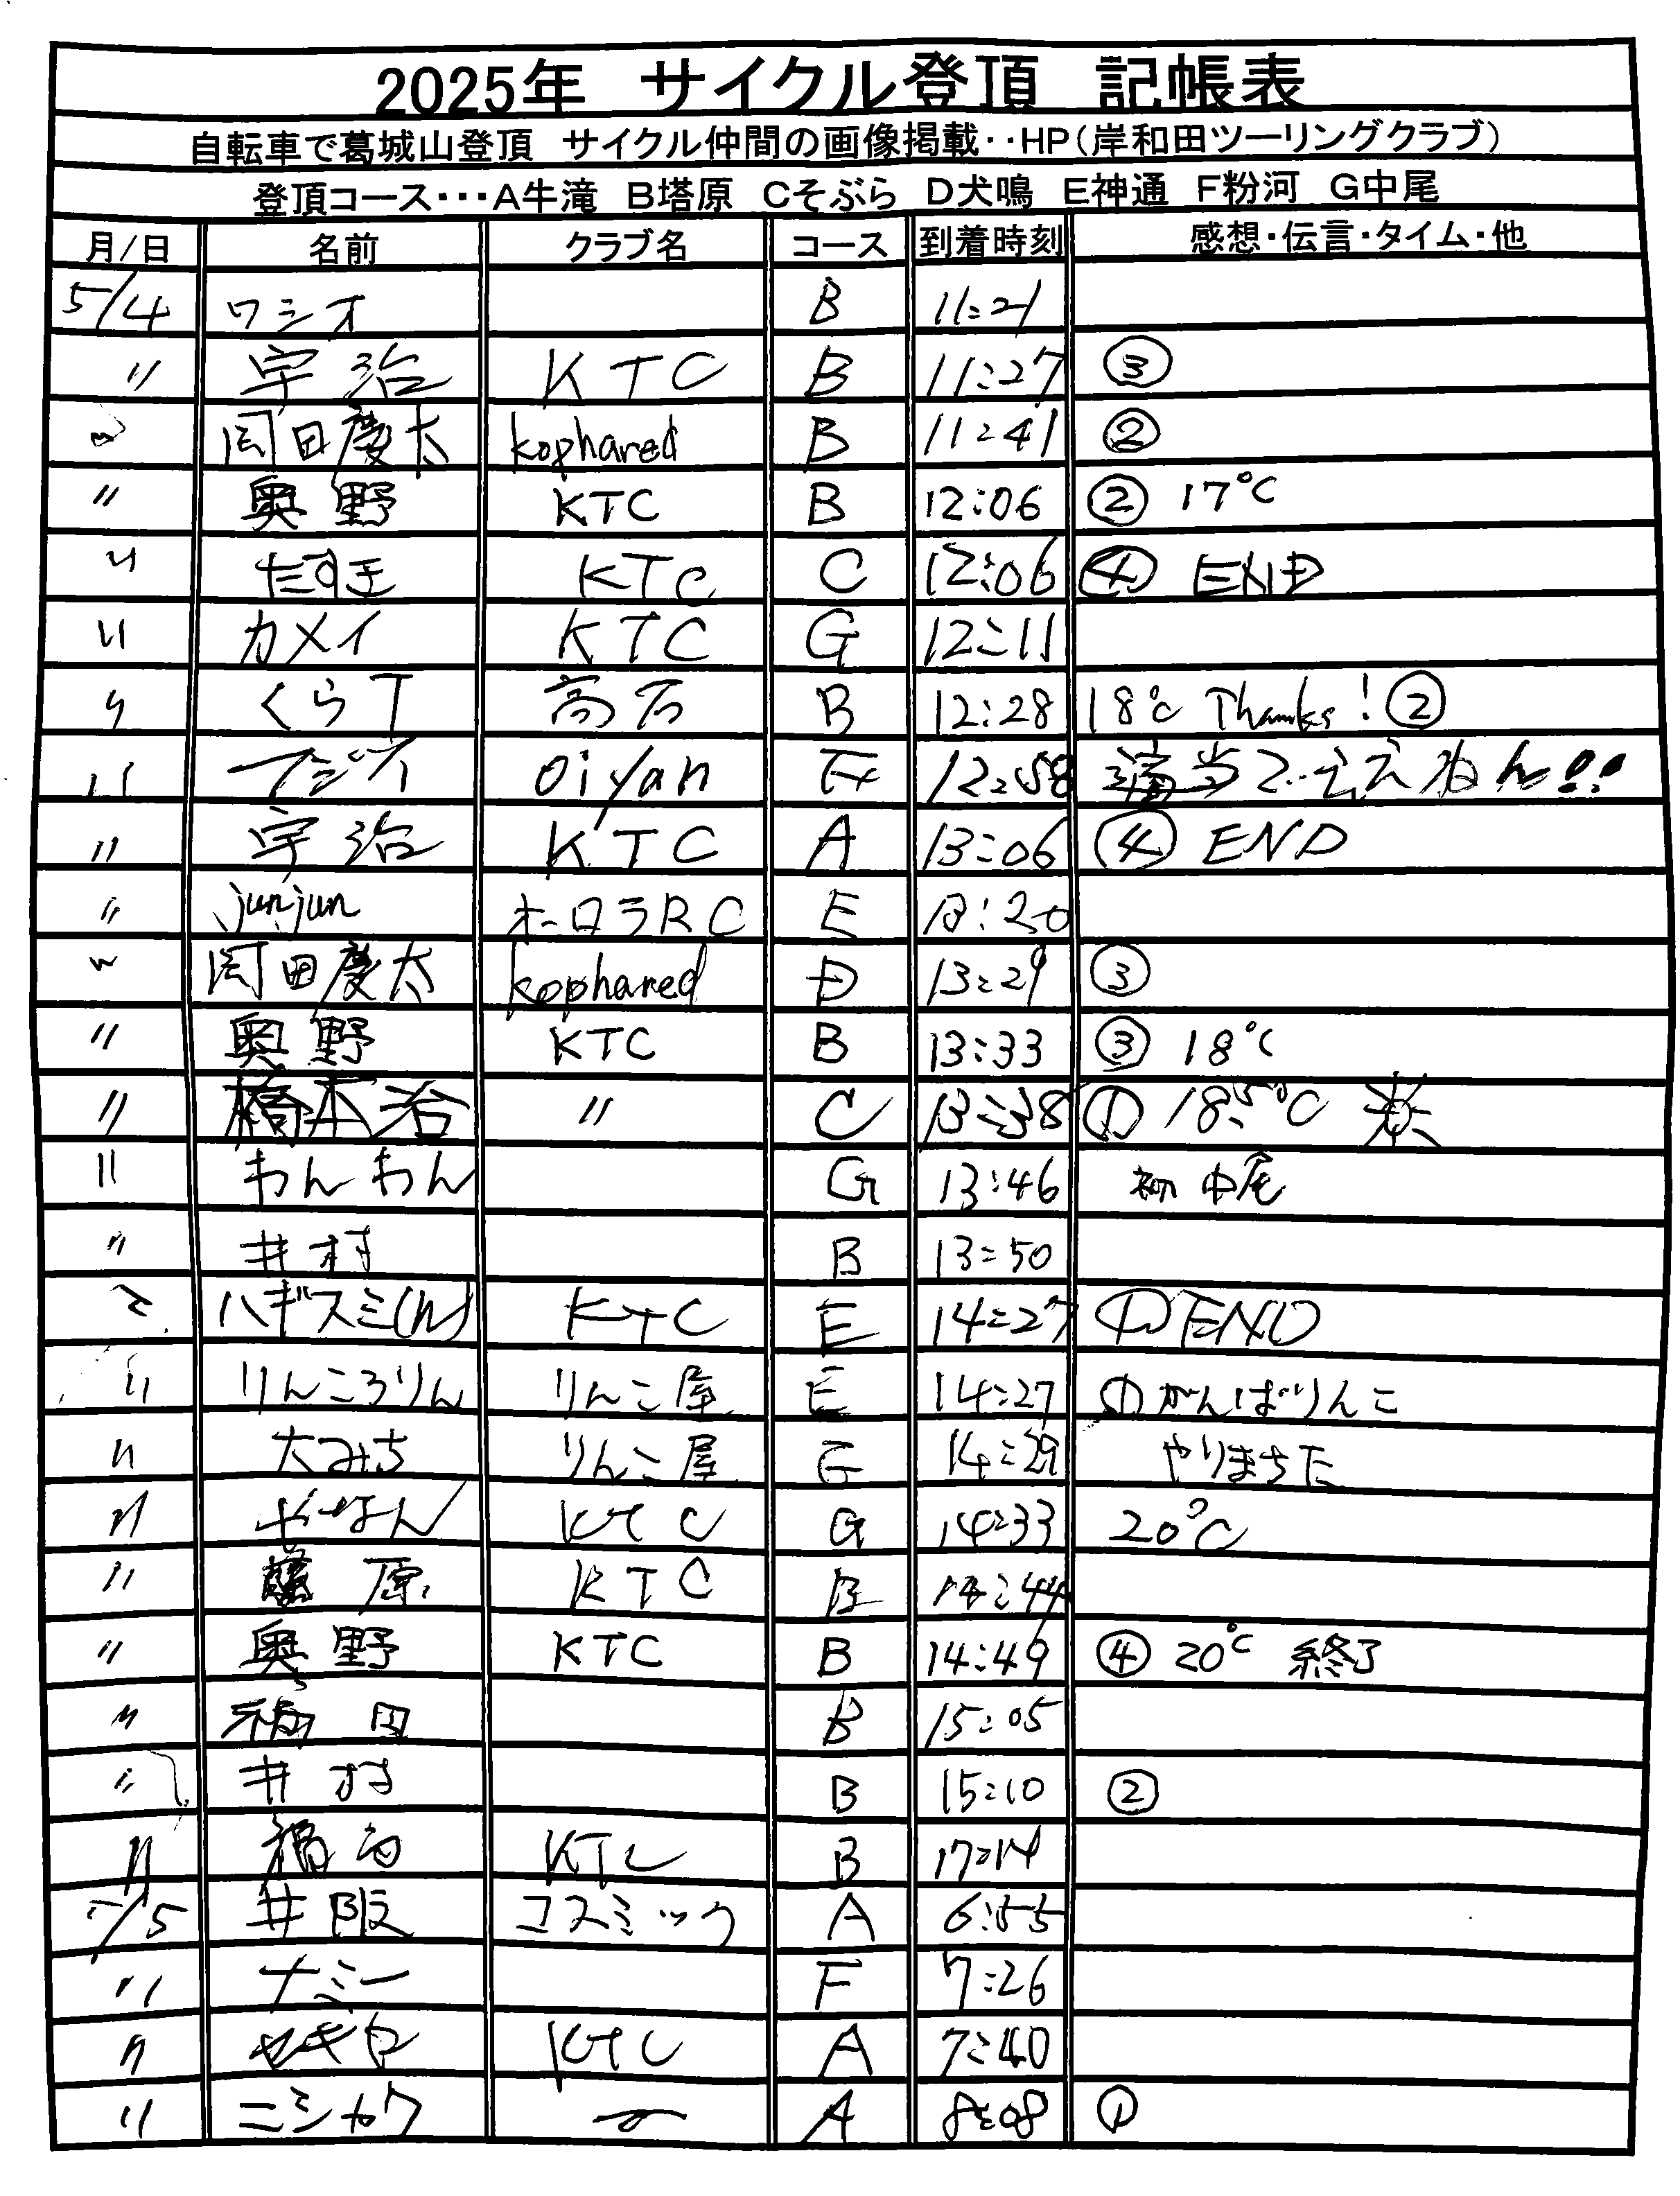 2025年 サイクル登頂 記帳表
自転車で葛城山登頂 サイクル仲間の画像掲載‥HP(岸和田ツーリングクラブ)
登頂コース･･･A牛滝 B塔原 Cそぶら D犬鳴 E神通 F粉河 G中尾
月/日 名前 クラブ名 コース 到着時刻 感想・伝言・タイム・他
5/4 ワシオ B 11:21
〃 宇治 KTC B 11:27 ③
〃 岡田慶太 kophared B 11:41 ②
〃 奥野 KTC B 12:06 ② 17℃
〃 KTC C 12:06 ④ END
〃 カメイ KTC G 12:11
〃 くらT 高石 B 12:28 18℃ Thanks! ②
〃 フジイ Oiyan F 12:58 適当でええねん!!
〃 宇治 KTC A 13:06 ④ END
〃 junjun オーロラRC E 13:20
〃 岡田慶太 kophared D 13:29 ③
〃 奥野 KTC B 13:33 ③ 18℃
〃 橋本治 〃 C 13:38 ① 18.5℃
〃 わんわん G 13:46 初中尾
〃 井村 B 13:50
〃 ハギスミ(h) KTC E 14:27 ① END
〃 りんころりん りんこ屋 E 14:27 ① がんばりんこ
〃 大みち りんこ屋 E 14:29 やりまちた
〃 やなん KTC G 14:33 20℃
〃 藤原 KTC B 14:44
〃 奥野 KTC B 14:49 ④ 20℃ 終了
〃 福田 B 15:05
〃 井村 B 15:10 ②
〃 KTC B 17:14
5/5 井阪 コスミック A 6:55
〃 ナミー F 7:26
〃 セキヤ KTC A 7:40
〃 ニシカワ A 8:08 ①